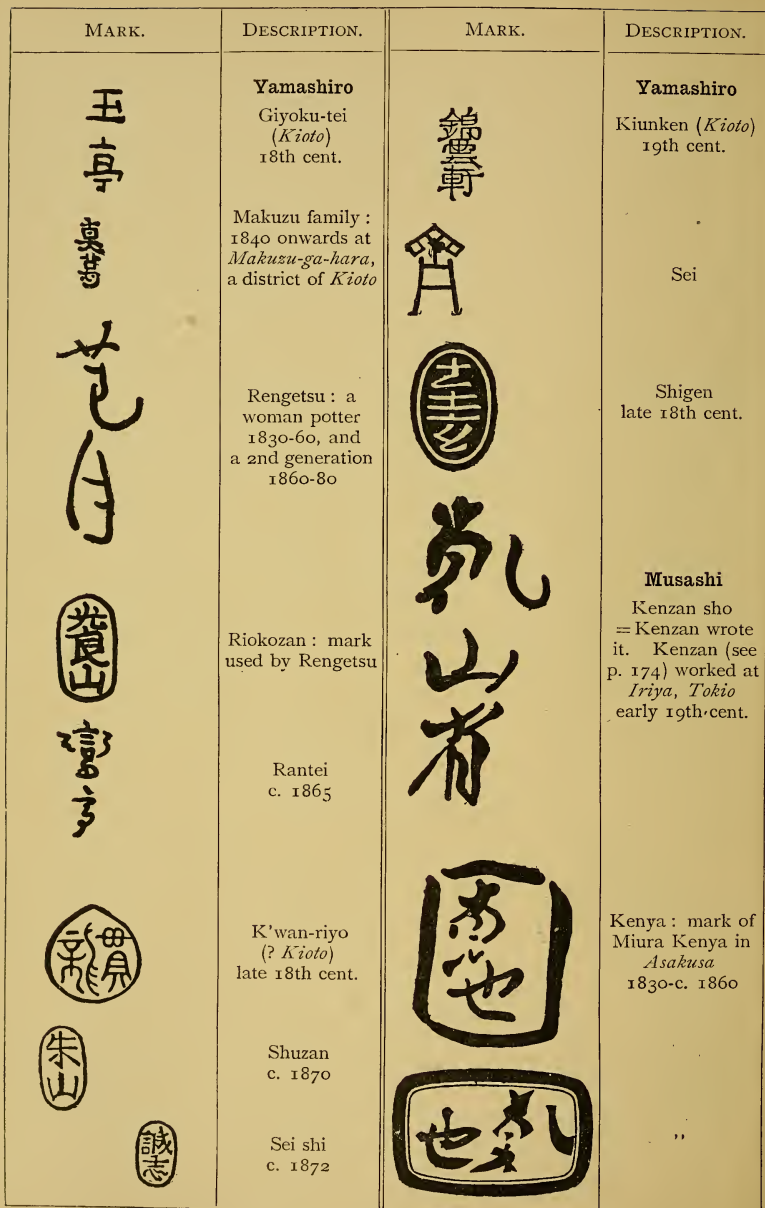 MARK.
DESCRIPTION.
玉
亭
Yamashiro
Giyoku-tei
(Kioto)
18th cent.
真葛
Makuzu family :
1840 onwards at
Makuzu-ga-hara,
a district of Kioto
月
Rengetsu : a
woman potter
1830-60, and
a 2nd generation
1860-80
山
Riokozan : mark
used by Rengetsu
亭
Rantei
c. 1865
K'wan-riyo
(? Kioto)
late 18th cent.
朱
山
Shuzan
c. 1870
誠
志
Sei shi
c. 1872
MARK.
DESCRIPTION.
錦
雲
軒
Yamashiro
Kiunken (Kioto)
19th cent.
Sei
Shigen
late 18th cent.
乾
山
Musashi
Kenzan sho
= Kenzan wrote
it. Kenzan (see
p. 174) worked at
Iriya, Tokio
early 19th cent.
也
Kenya : mark of
Miura Kenya in
Asakusa
1830-c. 1860
也
乾
,,